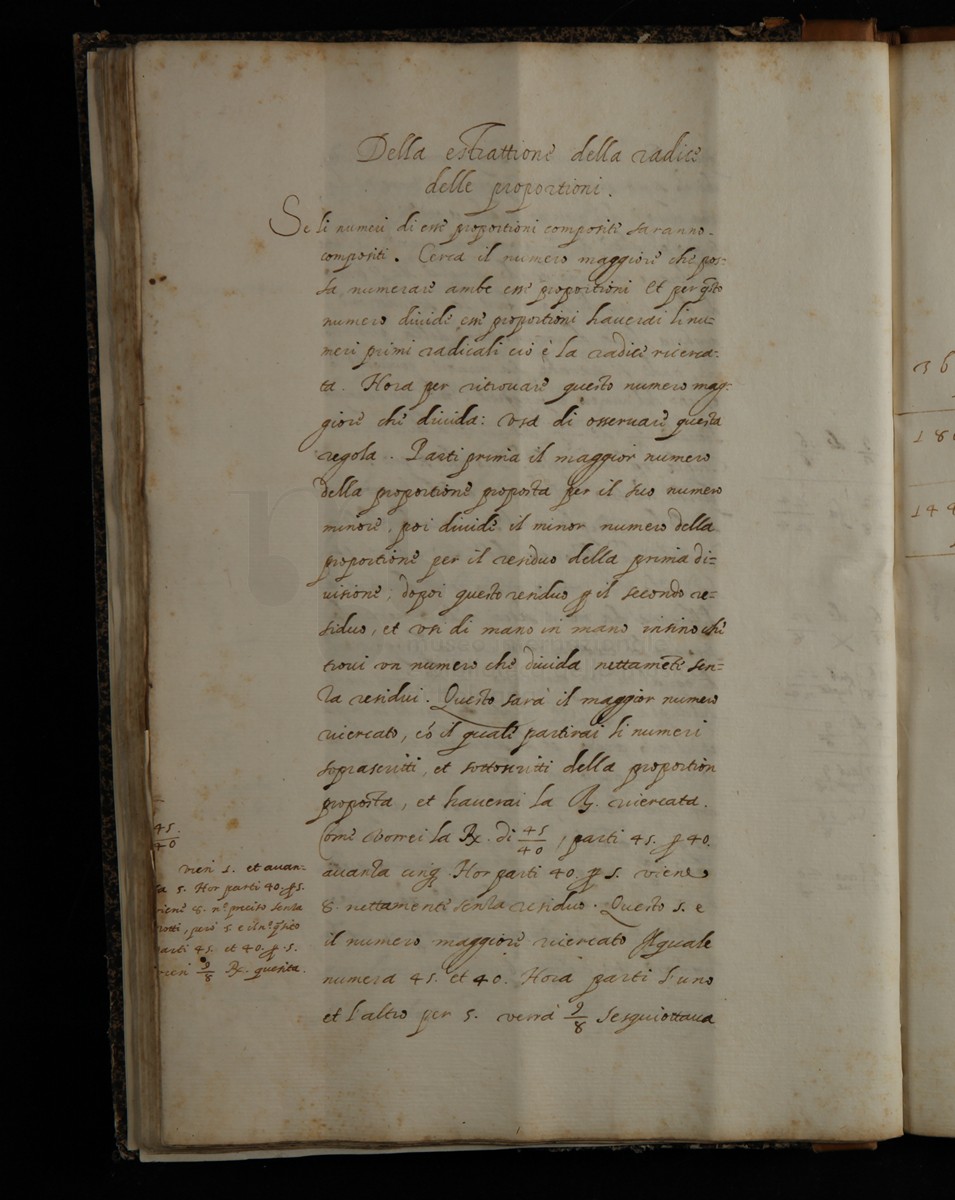 Della estrattione della radice
delle proportioni.
Se li numeri di esse proportioni composite saranno
compositi. Cerca il numero maggiore che pos:
sa numerare ambe esse proportioni Et per qsto
numero divide esse proportioni haverai li nu=
meri primi radicali ciò è la radice ricerca:
ta. Hora per ritrovare questo numero mag:
giore che divida: usa di osservare questa
regola. Parti prima il maggior numero
della proportione proposta per il suo numero
minore, poi divide il minor numero della
proportione per il residuo della prima di=
visione; dopoi questo residuo p il secondo re=
siduo, et cosi di mano in mano insino che
trovi un numero che divida nettamēte sen=
za residui. Questo sarà il maggior numero
ricercato, cō il quale partirai li numeri
soprascritti, et sottoscritti della proportion
proposta, et haverai la R. ricercata.
Come vorrei la R. di 45/40, parti 45. p 40.
avanza cinq. Hor parti 40. p 5. viene
8. nettamente senza residuo. Questo 5. e
il numero maggiore ricercato Il quale
numera 45. et 40. Hora parti l'uno
et l'altro per 5. verrà 9/8 Sesquiottava
45.
40
vien 1. et avan=
za 5. Hor parti 40. p 5.
viene 8. n.º preciso senza
rotti, però 5 è il n.º
parti 45. et 40. p. 5.
vien 9/8 R. quesita.
36
18
144